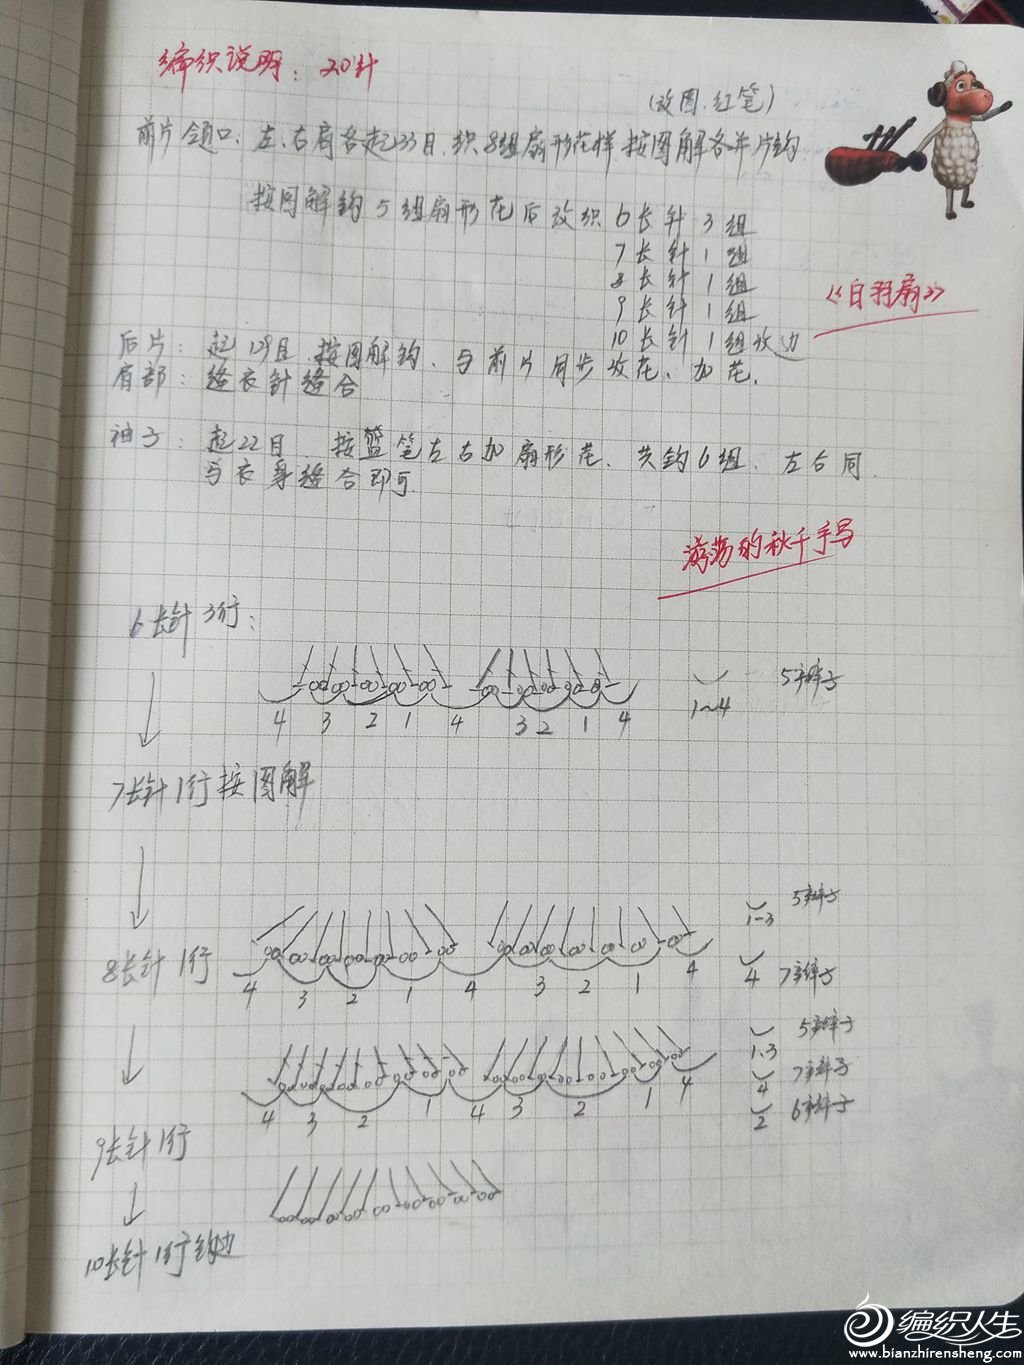 编织说明：20针
(放图.红笔)
前片领口：左、右肩各起33目.织8组扇形花样.按图解各并1片钩
按图解钩5组扇形花后改织6长针3组
7长针1组
8长针1组
9长针1组
《白羽扇》
10长针1组收边
后片：起129目.按图解钩、与前片同步收花、加花.
肩部：缝衣针缝合
袖子：起22目 按蓝笔左右加扇形花.共钩6组、左右同.
与衣身缝合即可.
游荡的秋千手写
6长针3行：
4 3 2 1 4 3 2 1 4
1~4 5辫子
7长针1行按图解
8长针1行
4 3 2 1 4 3 2 1 4
1-3 5辫子
4 7辫子
4 3 2 1 4 3 2 1 4
1.3 5辫子
4 7辫子
2 6辫子
9长针1行
10长针1行钩边
编织人生
www.bianzhirensheng.com